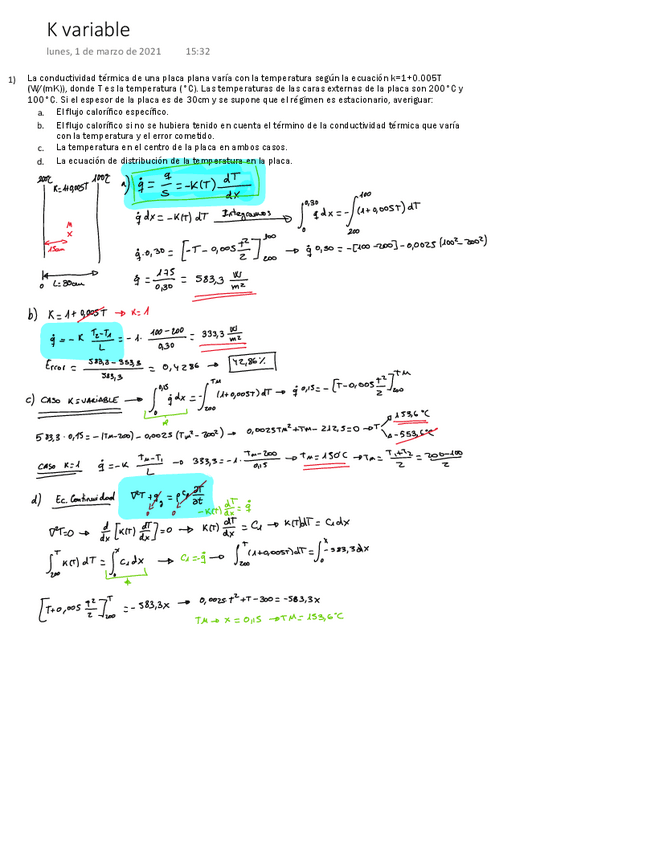 K variable
lunes, 1 de marzo de 2021 15:32
1) La conductividad térmica de una placa plana varía con la temperatura según la ecuación k=1+0.005T
(W/(mK)), donde T es la temperatura (°C). Las temperaturas de las caras externas de la placa son 200°C y
100°C. Si el espesor de la placa es de 30cm y se supone que el régimen es estacionario, averiguar:
a. El flujo calorífico específico.
b. El flujo calorífico si no se hubiera tenido en cuenta el término de la conductividad térmica que varía
con la temperatura y el error cometido.
c. La temperatura en el centro de la placa en ambos casos.
d. La ecuación de distribución de la temperatura en la placa.
200°C 100°C
K=1+0,005T
M
x
15cm
0 L=30cm
a) q̇ = q/S = -K(T) dT/dx
q̇ dx = -K(T) dT Integramos → ∫₀^0,30 q̇ dx = -∫₂₀₀^100 (1+0,005T) dT
q̇·0,30 = [-T - 0,005 T²/2]₂₀₀^100 → q̇ 0,30 = -[100-200] - 0,0025 (100²-200²)
q̇ = 175/0,30 = 583,3 W/m²
b) K = 1 + 0,005T → K=1
q̇ = -K (T₂-T₁)/L = -1 · (100-200)/0,30 = 333,3 W/m²
Error = (583,3-333,3)/583,3 = 0,4286 → 42,86%
c) CASO K=VARIABLE → ∫₀^0,15 q̇ dx = -∫₂₀₀^TM (1+0,005T) dT → q̇ 0,15 = -[T-0,005 T²/2]₂₀₀^TM
583,3·0,15 = -(TM-200) - 0,0025 (TM²-200²) → 0,0025TM² + TM - 212,5 = 0 → T 153,6°C
-553,6°C
CASO K=1 q̇ = -K (TM-T₁)/L → 333,3 = -1 · (TM-200)/0,15 → TM = 150°C → TM = (T₁+T₂)/2 = (200+100)/2
d) Ec. Continuidad ∇²T + q̇g = ρ Cp ∂T/∂t
0 0
-K(T) dT/dx = q̇
∇²T=0 → d/dx [K(T) dT/dx] = 0 → K(T) dT/dx = C₁ → K(T)dT = C₁dx
∫₂₀₀^T K(T) dT = ∫₀^x C₁ dx → C₁ = -q̇ → ∫₂₀₀^T (1+0,005T)dT = ∫₀^x -583,3dx
[T+0,005 T²/2]₂₀₀^T = -583,3x → 0,0025T² + T - 300 = -583,3x
TM → x = 0,15 → TM = 153,6°C